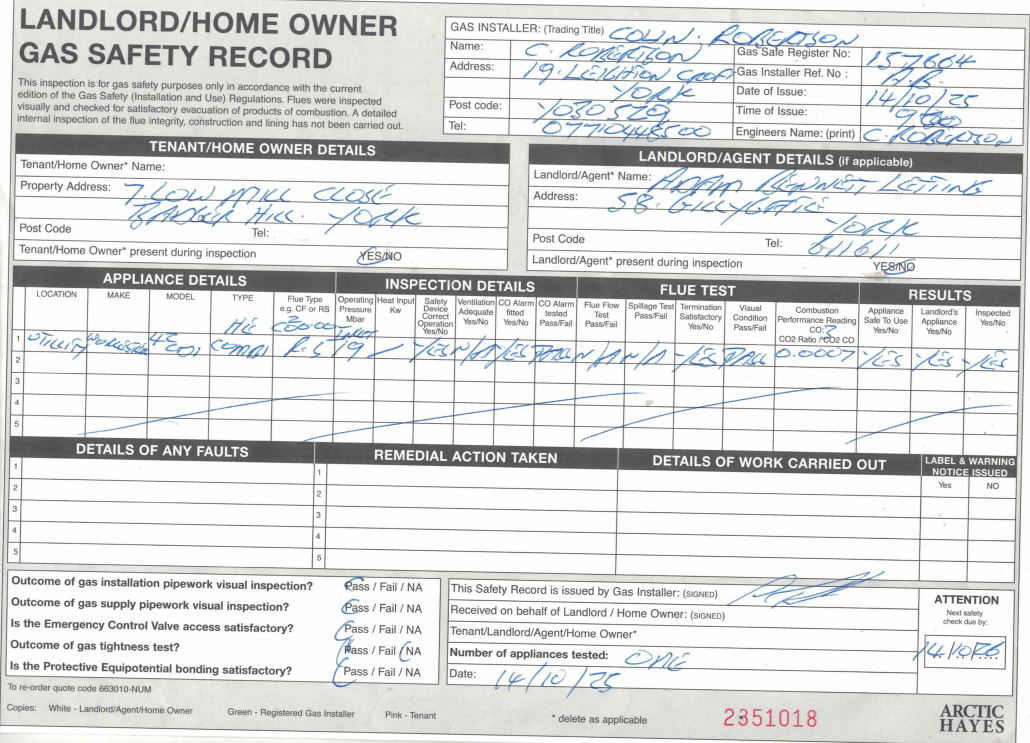 LANDLORD/HOME OWNER
GAS SAFETY RECORD
This inspection is for gas safety purposes only in accordance with the current
edition of the Gas Safety (Installation and Use) Regulations. Flues were inspected
visually and checked for satisfactory evacuation of products of combustion. A detailed
internal inspection of the flue integrity, construction and lining has not been carried out.
GAS INSTALLER: (Trading Title) COLIN. ROBERTSON
Name: C. ROBERTSON
Address: 19. LEIGHTON CROFT
YORK
Post code: YO30 5
Tel:
Gas Safe Register No: 157664
Gas Installer Ref. No : A.B.
Date of Issue: 14/10/25
Time of Issue: 9
Engineers Name: (print) C. ROBERTSON
TENANT/HOME OWNER DETAILS
Tenant/Home Owner* Name:
Property Address: 7. LOW MILL CLOSE
BADGER HILL. YORK
Post Code Tel:
Tenant/Home Owner* present during inspection YES/NO
LANDLORD/AGENT DETAILS (if applicable)
Landlord/Agent* Name: ADAM BENNETT LETTING
Address: 58. GILLYGATE
YORK
Post Code Tel: 611611
Landlord/Agent* present during inspection YES/NO
APPLIANCE DETAILS INSPECTION DETAILS FLUE TEST RESULTS
LOCATION MAKE MODEL TYPE Flue Type e.g. CF or RS Operating Pressure Mbar Heat Input Kw Safety Device Correct Operation Yes/No Ventilation Adequate Yes/No CO Alarm fitted Yes/No CO Alarm tested Pass/Fail Flue Flow Test Pass/Fail Spillage Test Pass/Fail Termination Satisfactory Yes/No Visual Condition Pass/Fail Combustion Performance Reading CO2 CO2 Ratio / CO2 CO Appliance Safe To Use Yes/No Landlord's Appliance Yes/No Inspected Yes/No
HE INLET
1 UTILITY WORCESTER COMBI R.S 19 YES N/A YES PASS N/A N/A YES PASS 0.0007 YES YES YES
2
3
4
5
DETAILS OF ANY FAULTS REMEDIAL ACTION TAKEN DETAILS OF WORK CARRIED OUT LABEL & WARNING NOTICE ISSUED
Yes NO
1 1
2 2
3 3
4 4
5 5
Outcome of gas installation pipework visual inspection? Pass / Fail / NA
Outcome of gas supply pipework visual inspection? Pass / Fail / NA
Is the Emergency Control Valve access satisfactory? Pass / Fail / NA
Outcome of gas tightness test? Pass / Fail / NA
Is the Protective Equipotential bonding satisfactory? Pass / Fail / NA
This Safety Record is issued by Gas Installer: (SIGNED)
Received on behalf of Landlord / Home Owner: (SIGNED)
Tenant/Landlord/Agent/Home Owner*
Number of appliances tested: ONE
Date: 14/10/25
ATTENTION
Next safety
check due by:
14/10/26
To re-order quote code 663010-NUM
Copies: White - Landlord/Agent/Home Owner Green - Registered Gas Installer Pink - Tenant * delete as applicable 2351018
ARCTIC
HAYES